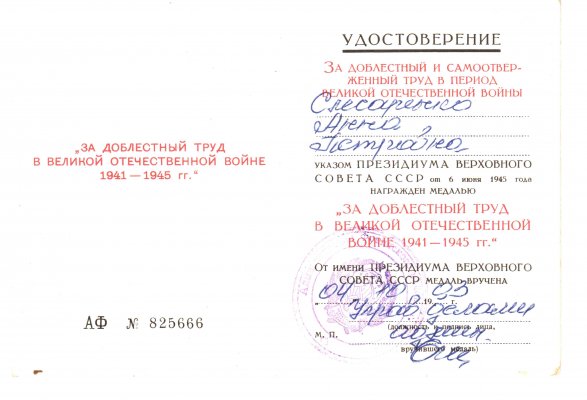 „ЗА ДОБЛЕСТНЫЙ ТРУД
В ВЕЛИКОЙ ОТЕЧЕСТВЕННОЙ ВОЙНЕ
1941—1945 гг.“
АФ № 825666
УДОСТОВЕРЕНИЕ
ЗА ДОБЛЕСТНЫЙ И САМООТВЕР-
ЖЕННЫЙ ТРУД В ПЕРИОД
ВЕЛИКОЙ ОТЕЧЕСТВЕННОЙ ВОЙНЫ
Слесаренко
Анна
УКАЗОМ ПРЕЗИДИУМА ВЕРХОВНОГО
СОВЕТА СССР от 6 июня 1945 года
НАГРАЖДЕН МЕДАЛЬЮ
„ЗА ДОБЛЕСТНЫЙ ТРУД
В ВЕЛИКОЙ ОТЕЧЕСТВЕННОЙ
ВОЙНЕ 1941—1945 гг.“
ОТ ИМЕНИ ПРЕЗИДИУМА ВЕРХОВНОГО
СОВЕТА СССР МЕДАЛЬ ВРУЧЕНА
04 10 19
Управ. делами
(должность и подпись лица,
М. П.
вручившего медаль)